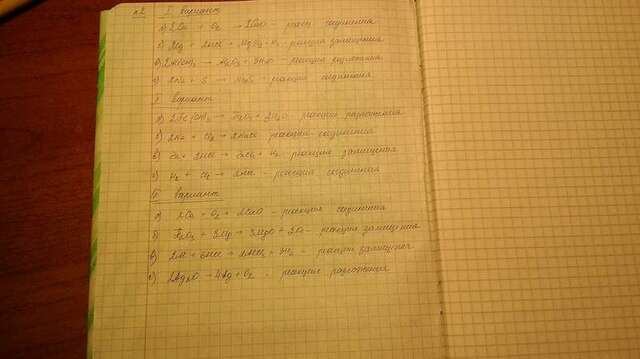 №2 I вариант
а) 2Ca + O₂ → 2CaO - реакц. соединения
б) Mg + 2HCl → MgCl₂ + H₂ - реакция замещения
в) 2Al(OH)₃ → Al₂O₃ + 3H₂O - реакция разложения
г) 2Na + S → Na₂S - реакция соединения
вариант
а) 2Fe(OH)₃ → Fe₂O₃ + 3H₂O - реакция разложения
б) 2Na + Cl₂ → 2NaCl реакция соединения
в) Zn + 2HCl → ZnCl₂ + H₂ - реакция замещения
г) H₂ + Cl₂ → 2HCl - реакция соединения
вариант
а) 2Ca + O₂ → 2CaO - реакция соединения
б) Fe₂O₃ + 3Mg → 3MgO + 2Fe - реакция замещения
в) 2Al + 6HCl → 2AlCl₃ + 3H₂ - реакция замещения
г) 2Ag₂O → 4Ag + O₂ - реакция разложения